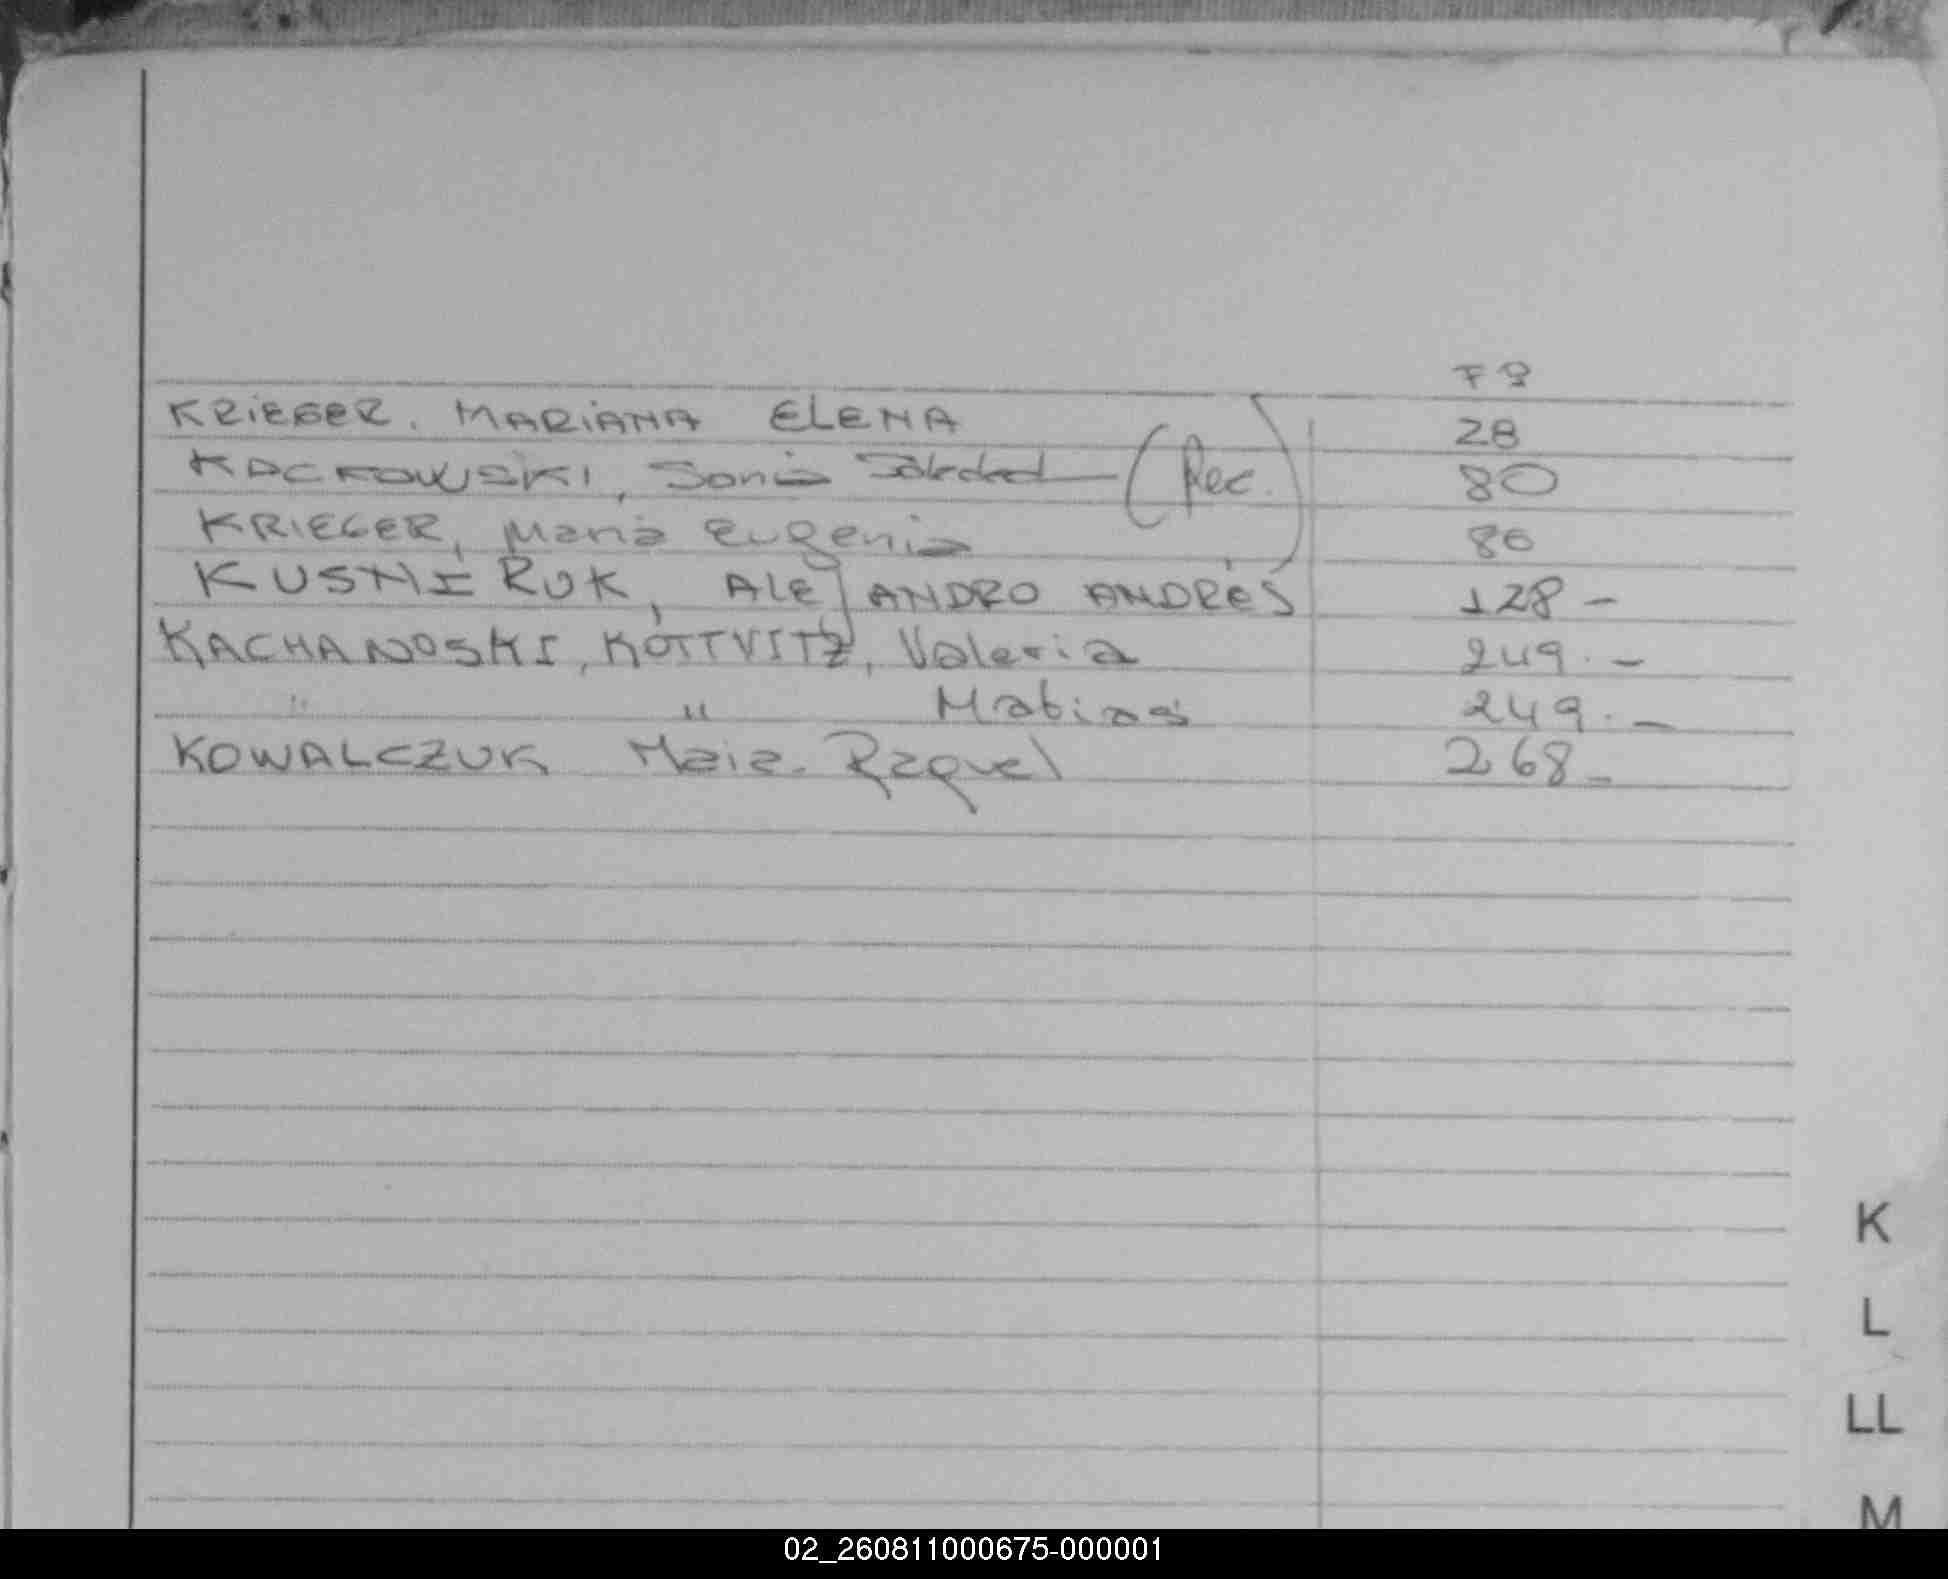 Fº
KRIEGER, MARIANA ELENA 28
KACKOWSKI, Sonia Soledad (Rec.) 80
KRIEGER, Maria Eugenia 80
KUSNIRUK, ALEJANDRO ANDRÉS 128 -
KACHANOSKI, KOTTVITZ, Valeria 249. -
" " Matias 249. -
KOWALCZUK Maia Raquel 268 -
K
L
LL
M
02_260811000675-000001